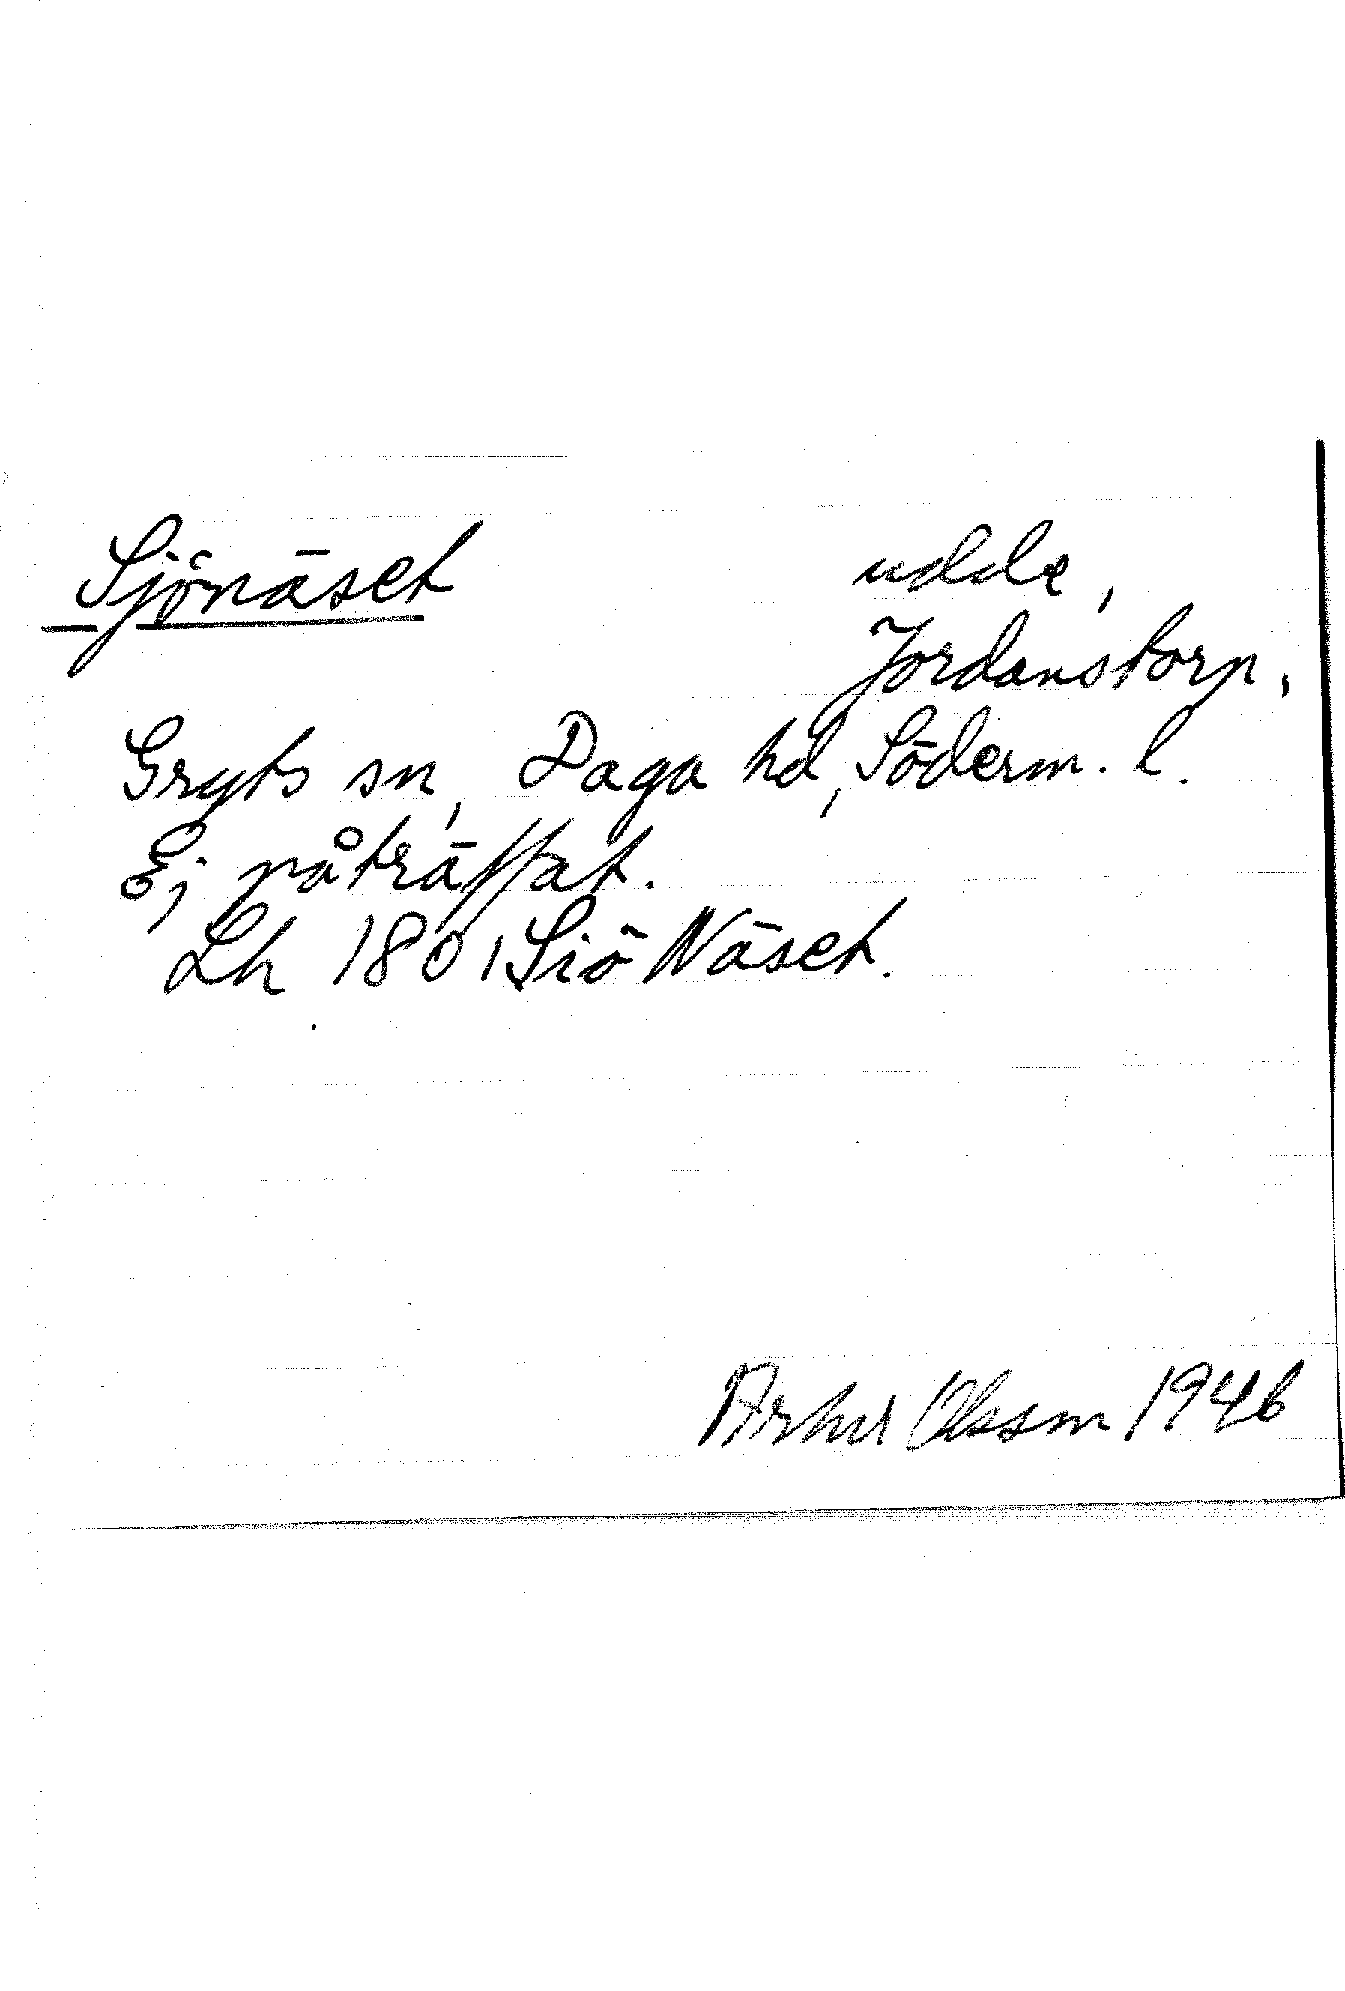 Sjönäset udde,
Jordanstorp,
Gryts sn, Daga hd, Söderm. l.
Ej påträffat.
Lh 1801 Siö Näset.
Arthur Olsson 1946